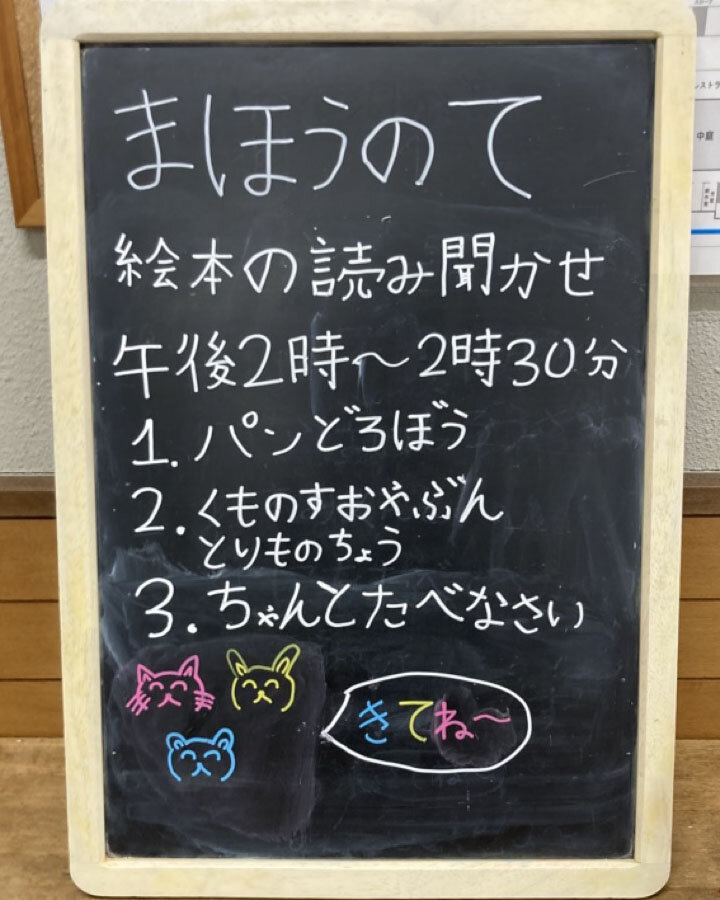 まほうのて
絵本の読み聞かせ
午後2時～2時30分
1. パンどろぼう
2. くものすおやぶん
とりものちょう
3. ちゃんとたべなさい
きてね～
レストラ
中庭